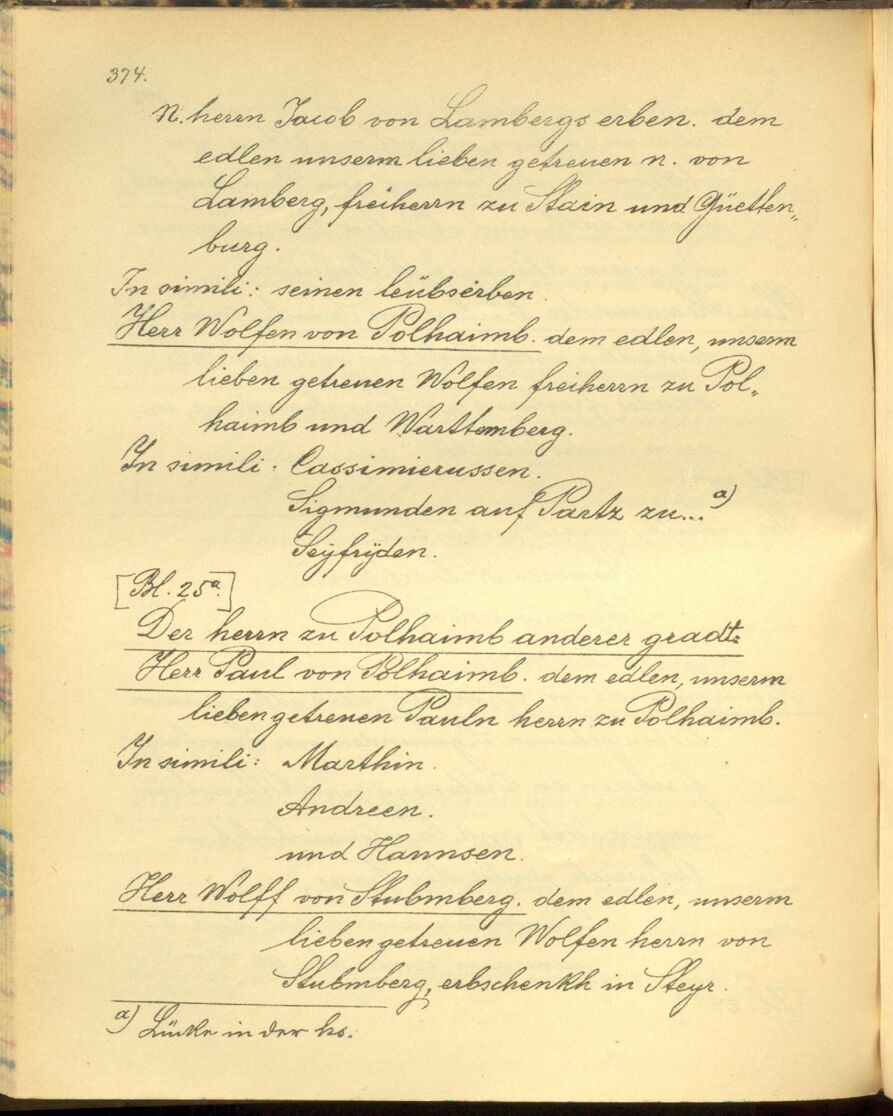 374.
N. herrn Jacob von Lambergs erben. dem
edlen unserm lieben getreuen n. von
Lamberg, freiherrn zu Stain und Güetten„
burg.
In simili: seinen leübserben.
Herr Wolfen von Polhaimb. dem edlen, unserm
lieben getreuen Wolfen freiherrn zu Pol„
haimb und Warttemberg.
In simili. Cassimierussen.
Sigmunden auf Partz zu... a)
Seÿfrÿden.
[Bl. 25a.]
Der herrn zu Polhaimb anderer gradt:
Herr Paul von Polhaimb. dem edlen, unserm
lieben getreuen Pauln herrn zu Polhaimb.
In simili: Marthin.
Andreen.
und Hannsen.
Herr Wolff von Stubmberg. dem edlen, unserm
lieben getreuen Wolfen herrn von
Stubmberg, erbschenkh in Steyr.
a) Lücke in der hs.